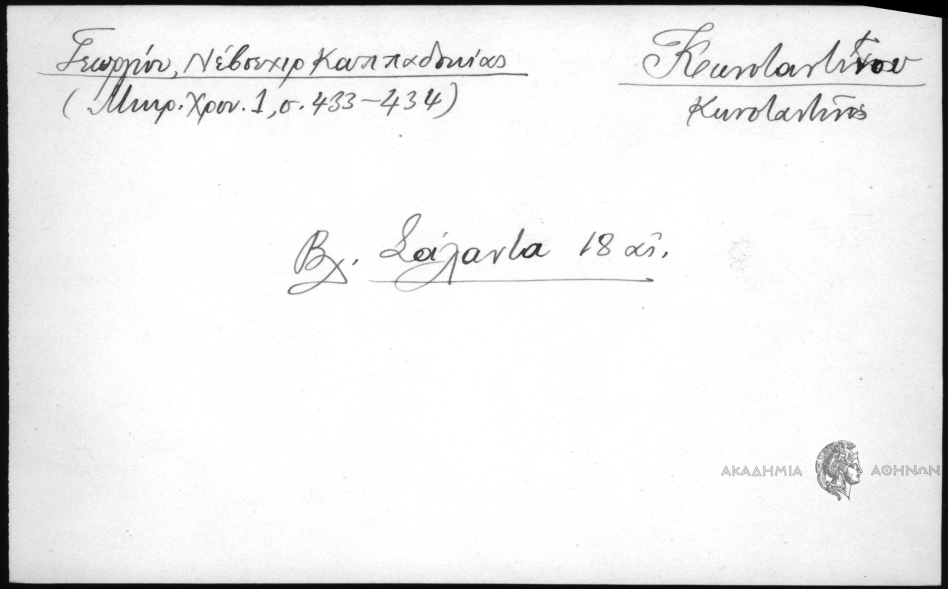 Γεωργίου, Νέβσεχιρ Καππαδοκίας
(Μικρ. Χρον. 1, σ. 433-434)
Κωνσταντίνου
Κωνσταντῖνος
Βχ. Σάλαντα 18 αἰ.
ΑΚΑΔΗΜΙΑ ΑΘΗΝΩΝ